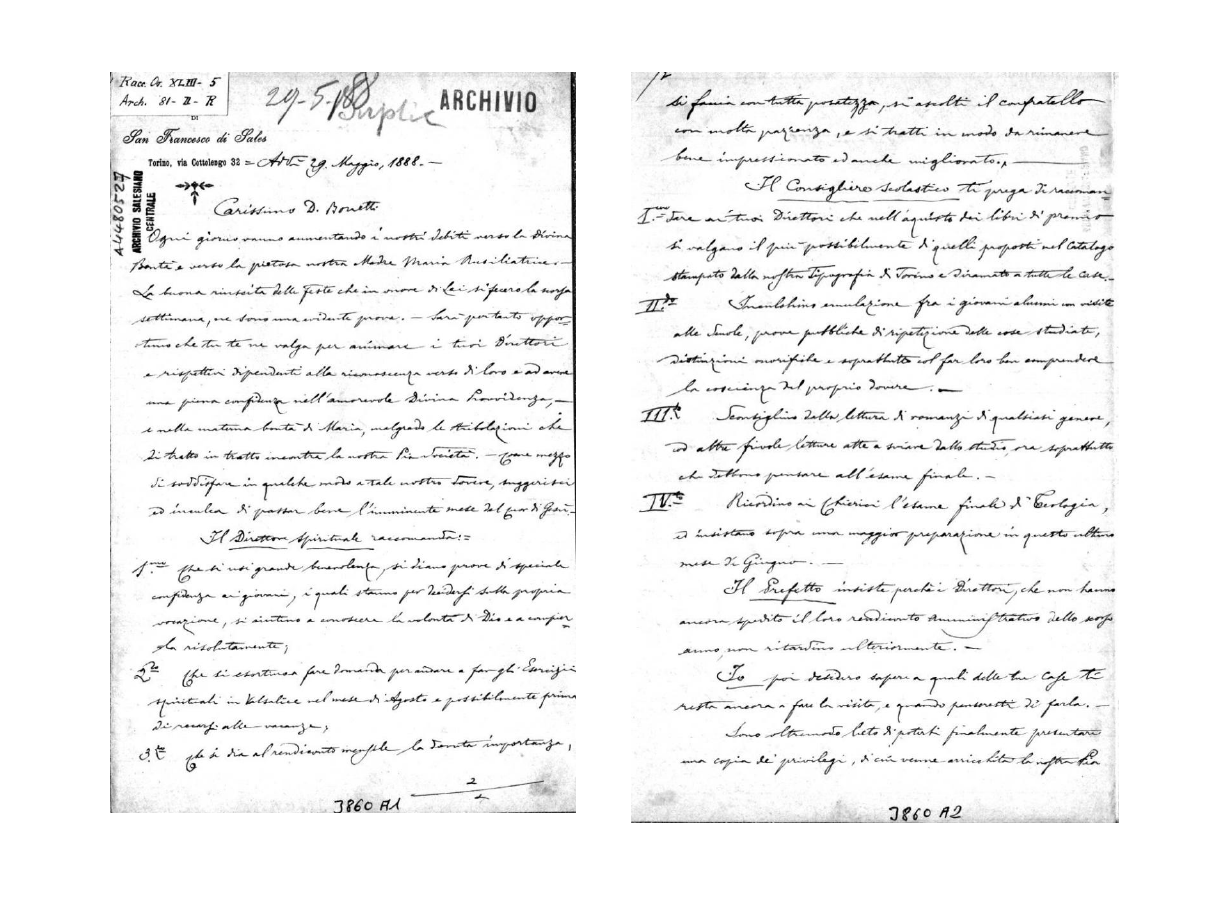 Race. Or. XLIII - 5
Arch. 81 - II - R
29-5-188
Duplic
ARCHIVIO
DI
San Francesco di Sales
Torino, via Cottolengo 32 = Addì 29. Maggio, 1888. —
A4480527
ARCHIVIO SALESIANO
CENTRALE
Carissimo D. Bonetti
Ogni giorno vanno aumentando i nostri debiti verso la Divina
Bontà e verso la pietosa nostra Madre Maria Ausiliatrice. —
La buona riuscita delle feste che in onore di Lei si fecero la scorsa
settimana, ne sono una evidente prova. — Sarà pertanto oppor-
tuno che tu te ne valga per animare i tuoi Direttori
e rispettivi dipendenti alla riconoscenza verso di loro e ad avere
una piena confidenza nell'amorevole Divina Provvidenza, —
e nella materna bontà di Maria, malgrado le tribolazioni che
di tratto in tratto incontra la nostra Pia Società. — Come mezzo
di soddisfare in qualche modo a tale nostro dovere, suggerisci
ed inculca di passar bene l'imminente mese del Cuor di Gesù. —
Il Direttore Spirituale raccomanda: =
1.mo Che si usi grande benevolenza, si diano prove di speciale
confidenza ai giovani, i quali stanno per decidersi sulla propria
vocazione, si aiutino a conoscere la volontà di Dio e a compier
la risolutamente;
2.do Che si esortino a fare domanda per andare a far gli Esercizi
spirituali in Valsalice nel mese di Agosto e possibilmente prima
di recarsi alle vacanze;
3.° Che si dia al rendiconto mensile la dovuta importanza,
2
J860 A1
2
si faccia con tutta posatezza, si ascolti il confratello
con molta pazienza, e si tratti in modo da rimanere
bene impressionato ed anche migliorato. —
Il Consigliere scolastico ti prega di raccoman
I.mo dare ai tuoi Direttori che nell'acquisto dei libri di premio
si valgano il più possibilmente di quelli proposti nel Catalogo
stampato dalla nostra Tipografia di Torino e diramato a tutte le Case. —
II.do Inculchino emulazione fra i giovani alunni con visite
alle Scuole, prove pubbliche di ripetizione delle cose studiate,
distinzioni onorifiche e soprattutto col far loro ben comprendere
la coscienza del proprio dovere. —
III. Sconsiglino dalla lettura di romanzi di qualsiasi genere,
ed altre frivole letture atte a sviare dallo studio, ora soprattutto
che debbono pensare all'esame finale. —
IV. Ricordino ai Chierici l'esame finale di Teologia,
ed insistano sopra una maggior preparazione in questo ultimo
mese di Giugno. —
Il Prefetto insiste perché i Direttori, che non hanno
ancora spedito il loro rendiconto Amministrativo dello scorso
anno, non ritardino ulteriormente. —
Io poi desidero sapere a quali delle tue Case ti
resta ancora a fare la visita, e quando penseresti di farla. —
Sono oltremodo lieto di poterti finalmente presentare
una copia de' privilegi, di cui venne arricchita la nostra Pia
J860 A2